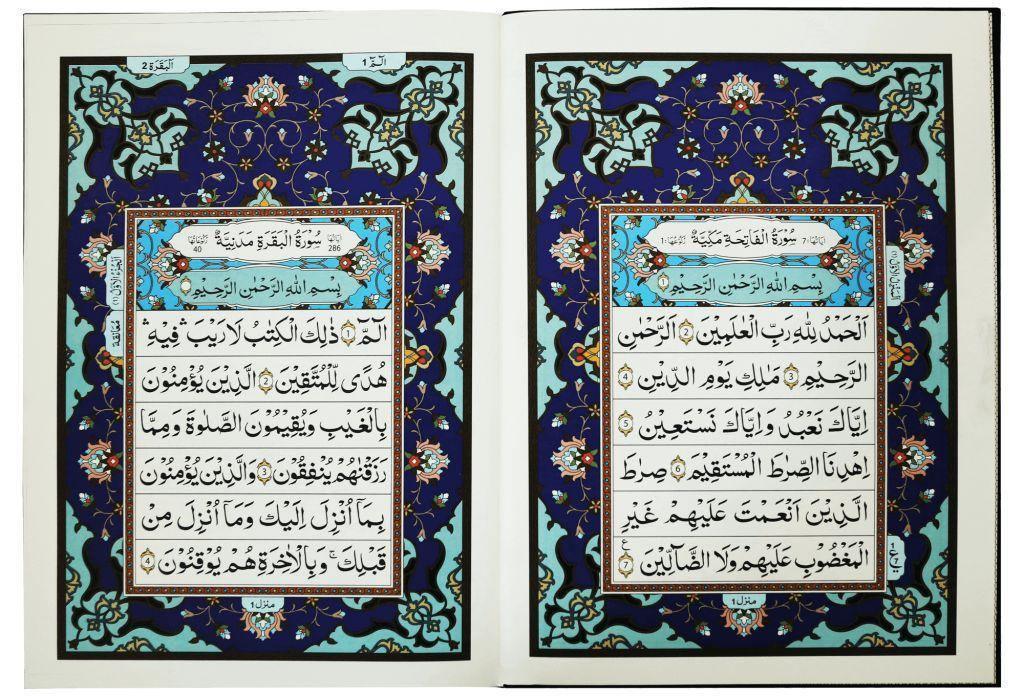 اٰيَاتُهَا 7 سُوْرَةُ الْفَاتِحَةِ مَكِّيَّةٌ رُكُوْعُهَا 1
بِسْمِ اللّٰهِ الرَّحْمٰنِ الرَّحِيْمِ 1
اَلْحَمْدُ لِلّٰهِ رَبِّ الْعٰلَمِيْنَ 2 الرَّحْمٰنِ
الرَّحِيْمِ 3 مٰلِكِ يَوْمِ الدِّيْنِ 4
اِيَّاكَ نَعْبُدُ وَاِيَّاكَ نَسْتَعِيْنُ 5
اِهْدِنَا الصِّرَاطَ الْمُسْتَقِيْمَ 6 صِرَاطَ
الَّذِيْنَ اَنْعَمْتَ عَلَيْهِمْ غَيْرِ
الْمَغْضُوْبِ عَلَيْهِمْ وَلَا الضَّآلِّيْنَ 7
1 ع 7
منزل 1
الٓمّٓ 1
اَلْبَقَرَة 2
اٰيَاتُهَا 286 سُوْرَةُ الْبَقَرَةِ مَدَنِيَّةٌ رُكُوْعَاتُهَا 40
بِسْمِ اللّٰهِ الرَّحْمٰنِ الرَّحِيْمِ
الٓمّٓ 1 ذٰلِكَ الْكِتٰبُ لَا رَيْبَ ۛ فِيْهِ ۛ
هُدًى لِّلْمُتَّقِيْنَ 2 الَّذِيْنَ يُؤْمِنُوْنَ
بِالْغَيْبِ وَيُقِيْمُوْنَ الصَّلٰوةَ وَمِمَّا
رَزَقْنٰهُمْ يُنْفِقُوْنَ 3 وَالَّذِيْنَ يُؤْمِنُوْنَ
بِمَآ اُنْزِلَ اِلَيْكَ وَمَآ اُنْزِلَ مِنْ
قَبْلِكَ ۚ وَبِالْاٰخِرَةِ هُمْ يُوْقِنُوْنَ 4
اَلْجُزْءُ الْاَوَّلُ (١)
مُعَانَقَة
منزل 1